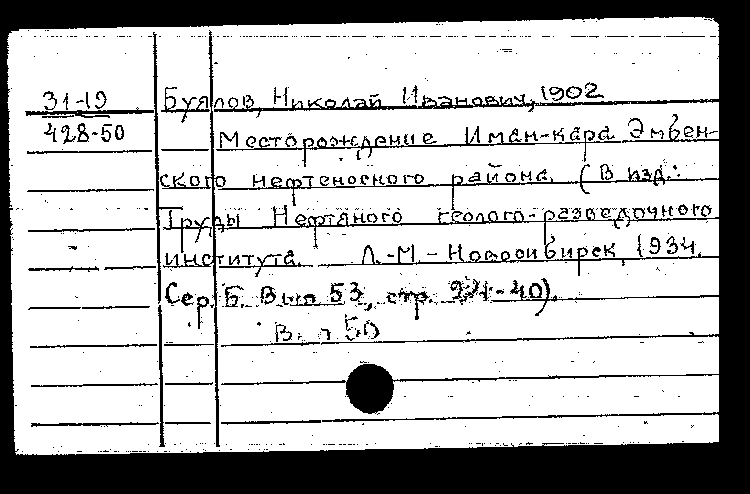 31-19 Буялов, Николай Иванович, 1902
428-50 Месторождение Иман-кара Эмбен-
ского нефтеносного района. (В изд.:
Труды Нефтяного геолого-разведочного
института. Л.-М.-Новосибирск, 1934.
Сер. Б. Вып 53, стр. -40).
В. 50